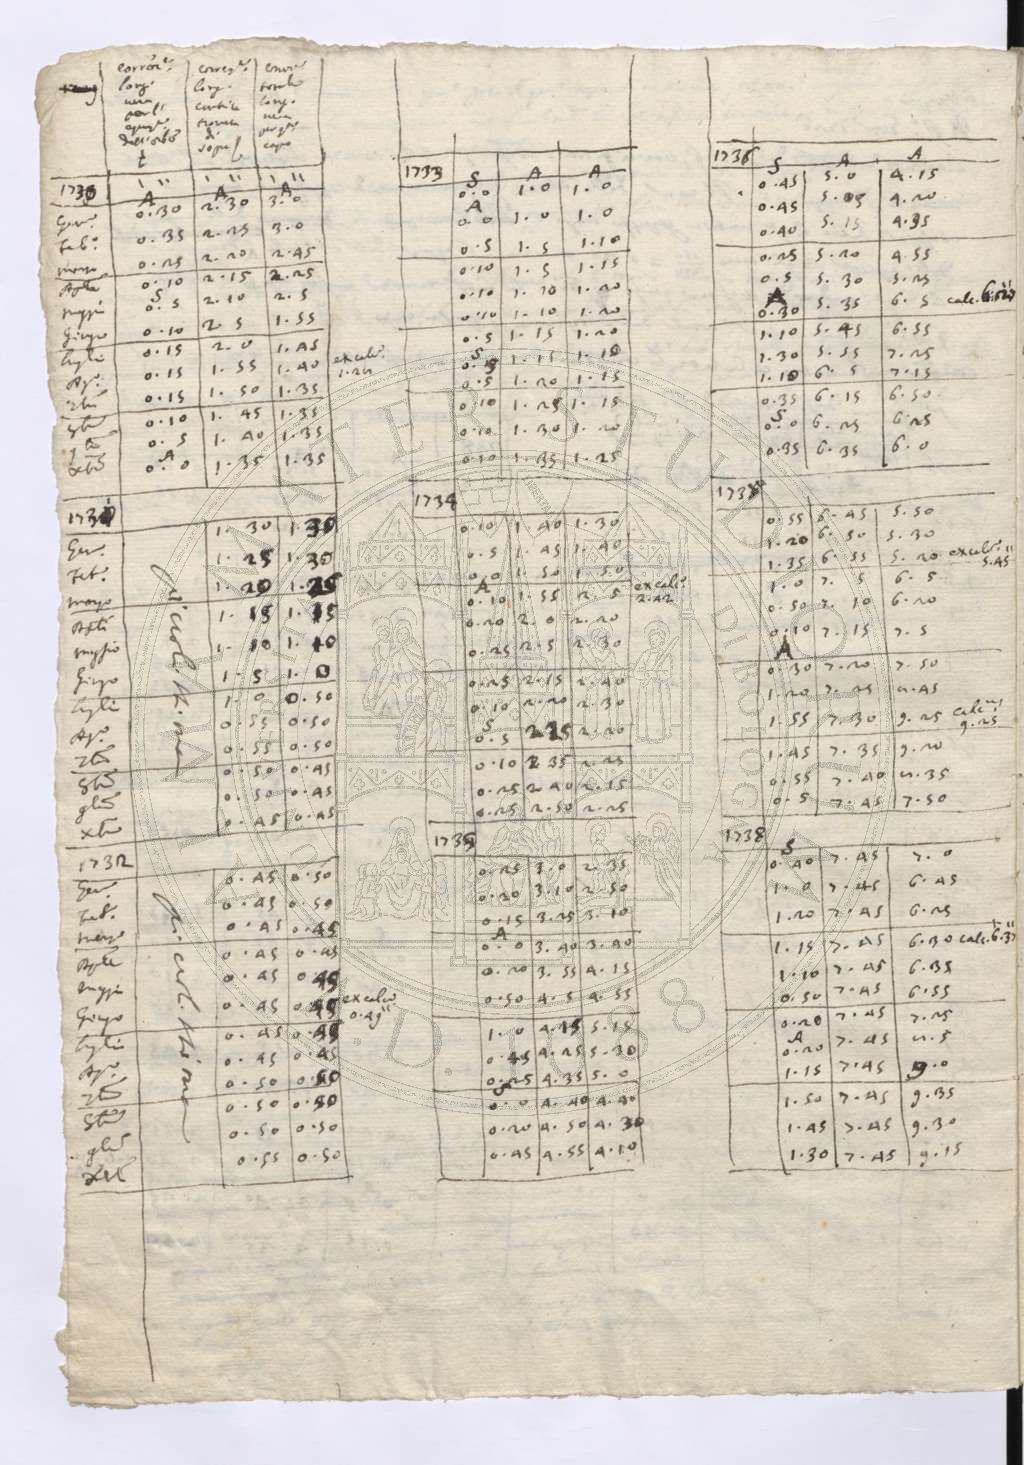 long.
long.
long.
1730 A A A
Gen.º 0.30 2.30 3.0
Feb.º 0.35 2.25 3.0
marzo 0.25 2.20 2.45
Aple 0.10 2.15 2.25
S
0.5 2.10 2.5
Giugo 0.10 2.5 1.55
luglio 0.15 2.0 1.45
Agº. 0.15 1.55 1.40
ex calc.º 1.24
7bre 0.15 1.50 1.35
8bre 0.10 1.45 1.35
9bre 0.5 1.40 1.35
A
xbre 0.0 1.35 1.35
Gen.º 1.30 1.30
Feb.º 1.25 1.30
marzo 1.20 1.25
Aple 1.15 1.15
1.10 1.10
Giugo 1.5 1.0
luglio 1.0 0.50
Agº. 0.55 0.50
7bre 0.55 0.50
8bre 0.50 0.45
9bre 0.50 0.45
xbre 0.45 0.45
1732
Gen.º 0.45 0.50
Feb.º 0.45 0.50
marzo 0.45 0.45
Aple 0.45 0.45
0.45 0.45
Giugo 0.45 0.45
ex calc.º 0.49"
luglio 0.45 0.45
Agº. 0.45 0.45
7bre 0.50 0.50
8bre 0.50 0.50
9bre 0.50 0.50
xbre 0.55 0.50
1733 S A A
0.0 1.0 1.0
A
0.0 1.0 1.0
0.5 1.5 1.10
0.10 1.5 1.15
0.10 1.10 1.20
0.10 1.10 1.20
0.5 1.15 1.20
S
0.5 1.15 1.10
0.5 1.20 1.15
0.10 1.25 1.15
0.10 1.30 1.20
0.10 1.35 1.25
1734
0.10 1.40 1.30
0.5 1.45 1.40
0.0 1.50 1.50
A
0.10 1.55 2.5
ex calc.º 2.42
0.20 2.0 2.20
0.25 2.5 2.30
0.25 2.15 2.40
0.10 2.20 2.30
S
0.5 2.25 2.20
0.10 2.35 2.25
0.25 2.40 2.15
0.25 2.50 2.25
1735
0.25 3.0 2.35
0.20 3.10 2.50
0.15 3.25 3.10
A
0.0 3.40 3.40
0.20 3.55 4.15
0.50 4.5 4.55
1.0 4.15 5.15
0.45 4.25 5.30
0.25 4.35 5.0
S
0.0 4.40 4.40
0.20 4.50 4.30
0.45 4.55 4.10
1736 S A A
0.45 5.0 4.15
0.45 5.05 4.20
0.40 5.15 4.35
0.25 5.20 4.55
0.5 5.30 5.25
A
0.30 5.35 6.5 calc.
1.10 5.45 6.55
1.30 5.55 7.25
1.10 6.5 7.15
0.35 6.15 6.50
S
0.0 6.25 6.25
0.35 6.35 6.0
1737
0.55 6.45 5.50
1.20 6.50 5.30
1.35 6.55 5.20 ex calc.º 5.45"
1.0 7.5 6.5
0.50 7.10 6.20
0.10 7.15 7.5
A
0.30 7.20 7.50
1.20 7.25 8.45
1.55 7.30 9.25 calc. 9.25
1.45 7.35 9.20
0.55 7.40 8.35
0.5 7.45 7.50
1738
S
0.40 7.45 7.0
1.0 7.45 6.45
1.20 7.45 6.25
1.15 7.45 6.30 calc. 6.37
1.10 7.45 6.35
0.50 7.45 6.55
0.20 7.45 7.25
A
0.20 7.45 8.5
1.15 7.45 9.0
1.50 7.45 9.35
1.45 7.45 9.30
1.30 7.45 9.15